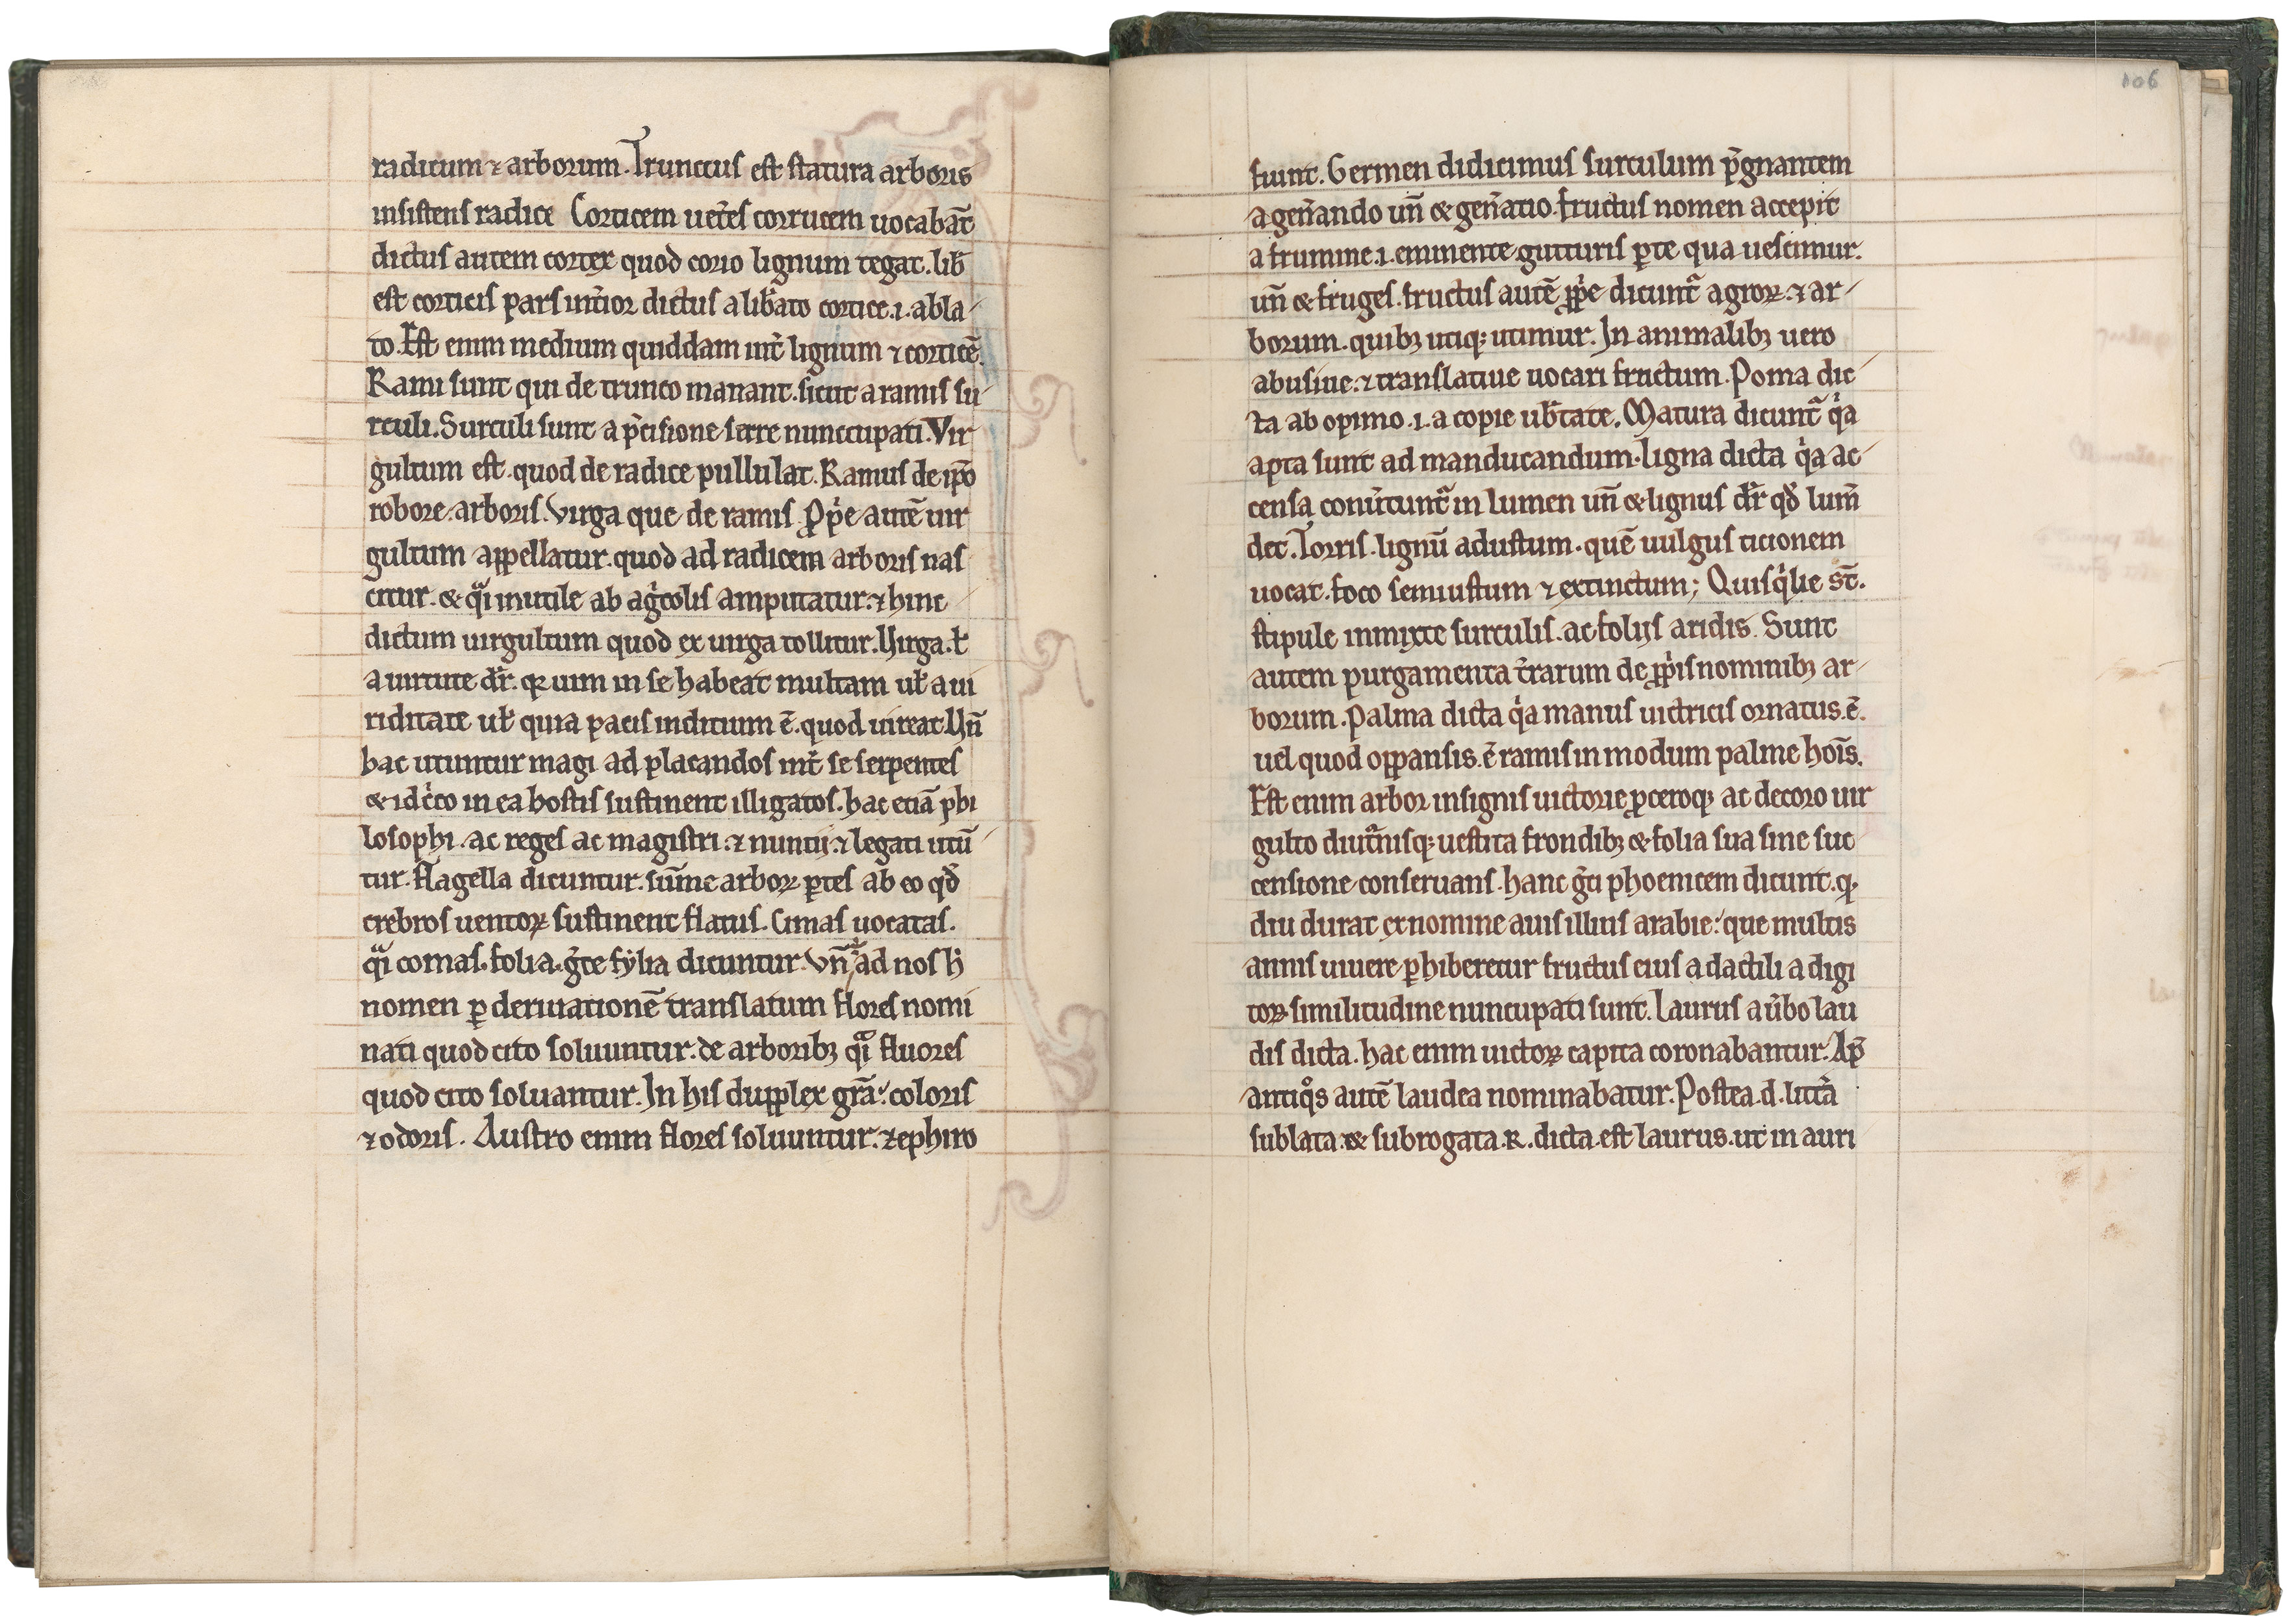 radicum ⁊ arborum. Trunccus est statura arboris
insistens radice Corticem uet̃es corrucem uocabãt
dictus autem cortex quod corio lignum tegat. lib̃
est corticis pars int̃ior dictus a lib̃ato cortice .i. abla
to. Est enim medium quiddam int̃ lignum ⁊ corticẽ.
Rami sunt qui de trunco manant. sicut a ramis su
rculi. Surculi sunt a p̃cisione serre nunccupati. Vir
gultum est. quod de radice pullulat. Ramus de ip̃o
robore arboris. Virga que de ramis. Ꝓp̲e autẽ uir
gultum appellatur. quod ad radicem arboris nas
citur. & q̃i inutile ab ag̲colis amputatur. ⁊ hinc
dictum uirgultum quod ex uirga tollitur. Uirga. ł
a uirtute dr̃. qꝛ uim in se habeat multam uł a ui
riditate uł quia pacis indicium ẽ. quod uireat. Un̄
hac utuntur magi ad placandos int̃ se serpentes
& idc̲co in ea hostis sustinent illigatos. hac etiã phi
losophi. ac reges ac magistri. ⁊ nuntij. ⁊ legati utũ
tur. Flagella dicuntur. sũme arboꝝ ꝑtes ab eo qđ
crebros uentoꝝ sustinent flatus. Cimas uocatas.
q̃i comas. folia. g̃ce fylia dicuntur. Vn̄ ad nos h̲
nomen ꝑ deriuationẽ translatum flores nomi
nati quod cito soluuntur. de arboribꝫ q̃i fluores
quod cito soluantur. In his dupplex grã. coloris
⁊ odoris. Austro enim flores soluuntur. zephiro
106
fiunt. Germen didicimus surculum p̃gnantem
a gen̄ando un̄ & gen̄atio. Fructus nomen accepit
a frumine .i. eminente gutturis ꝑte qua uescimur.
un̄ & fruges. fructus autẽ ꝓp̲e dicunt̃ agroꝝ. ⁊ ar
borum. quibꝫ utiqꝫ utimur. In animalibꝫ uero
abusiue. ⁊ translatiue uocari fructum. Poma dic
ta ab opimo .i. a copie ub̃tate. Matura dicunt̃ q̲a
apta sunt ad manducandum. ligna dicta q̲a ac
censa conũtunt̃ in lumen un̄ & lignus dr̃ qđ lum̄
det. Torris. lignũ adustum. quẽ uulgus ticionem
uocat. foco semiustum ⁊ extinctum; Quisq̲lie st̄.
stipule inmixte surculis. ac folijs aridis. Sunt
autem purgamenta t̃rarum de ꝓp̲is nominibꝫ ar
borum. Palma dicta q̲a manus uictricis ornatus. ẽ.
uel quod oppansis. ẽ ramis in modum palme hoĩs.
Est enim arbor insignis uictorie ꝓceroqꝫ ac decoro uir
gulto diut̃nisqꝫ uestita frondibꝫ & folia sua sine suc
censione conseruans. hanc g̲ci phoenicem dicunt. qꝫ
diu durat ex nomine auis illius arabie. que multis
annis uiuere ꝑhiberetur fructus eius a dactili a digi
toꝝ similitudine nuncupati sunt. Laurus a ũbo lau
dis dicta. hac enim uictoꝝ capita coronabantur. Ap̄
antiqͦs autẽ laudea nominabatur. Postea. d. litt̃a
sublata. & subrogata. R. dicta est laurus. ut in auri